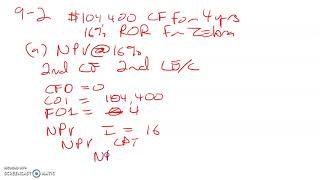 9-2 $104,400 CF for 4 yrs
16% ROR for Zebra
(a) NPV@16%
2nd CF 2nd CE/C
CF0 = 0
C01 = 104,400
F01 = 4
NPV I = 16
NPV CPT
N
RECORDED WITH
SCREENCAST-O-MATIC